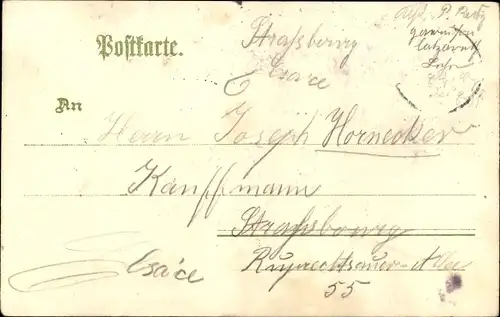 Postkarte.
Straßbourg
Elsace
garnison
lazarett
An
Herrn Joseph Hornecker
Kauffmann
Straßbourg
Elsace
Ruprechtsauer-Allee
55